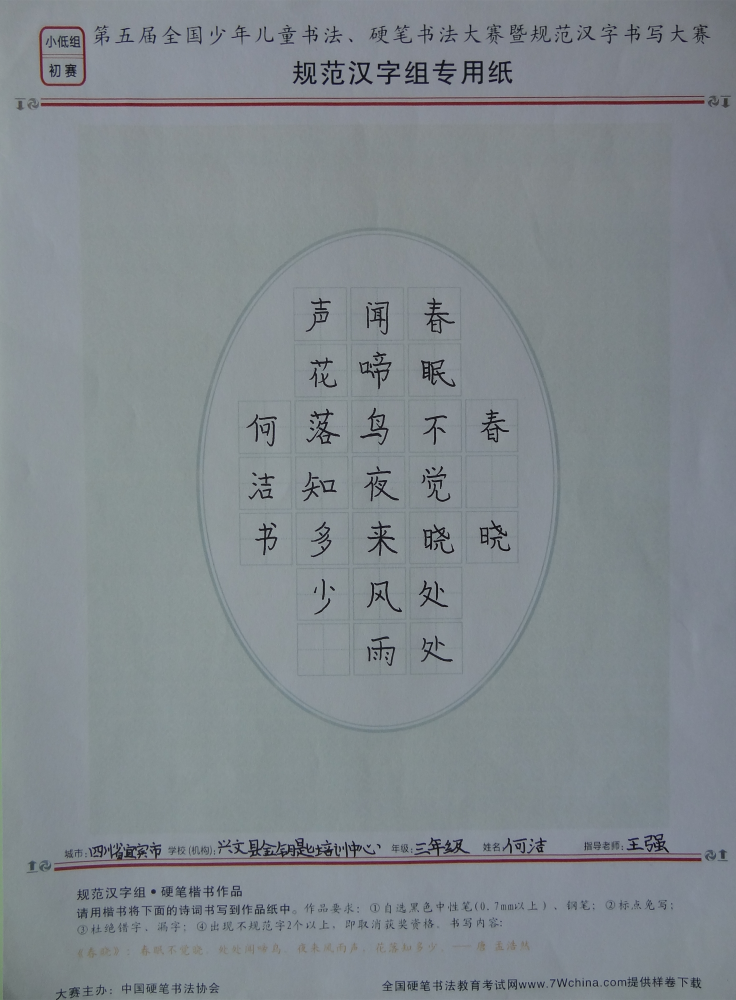 小低组
初赛
第五届全国少年儿童书法、硬笔书法大赛暨规范汉字书写大赛
规范汉字组专用纸
春晓
春眠不觉晓处处
闻啼鸟夜来风雨
声花落知多少
何洁书
城市:四川省宜宾市 学校(机构):兴文县金钥匙培训中心 年级:三年级 姓名:何洁 指导老师:王强
规范汉字组•硬笔楷书作品
请用楷书将下面的诗词书写到作品纸中。作品要求:①自选黑色中性笔(0.7mm以上)、钢笔;②标点免写;
③杜绝错字、漏字;④出现不规范字2个以上,即取消获奖资格。书写内容:
《春晓》:春眠不觉晓,处处闻啼鸟。夜来风雨声,花落知多少。——唐 孟浩然
大赛主办:中国硬笔书法协会 全国硬笔书法教育考试网www.7Wchina.com提供样卷下载